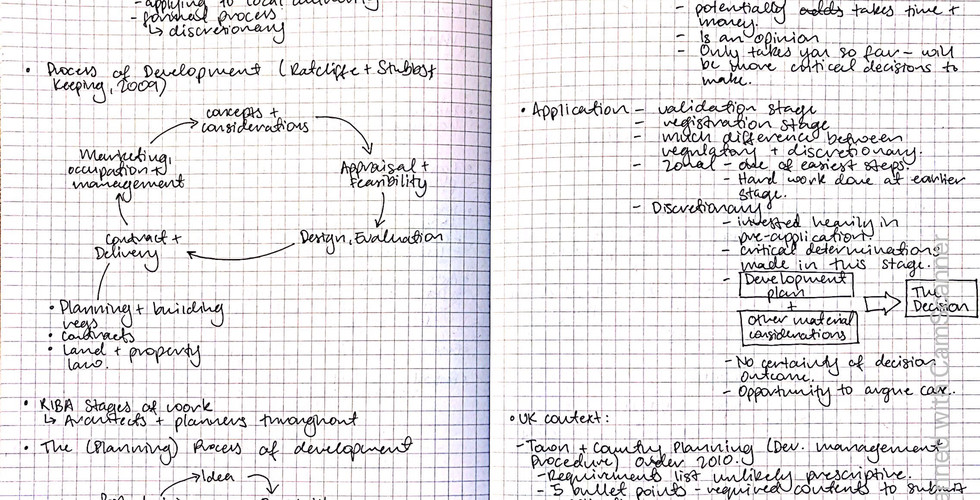 - applying to local authority
- formal process
↳ discretionary
• Process of Development (Ratcliffe + Stubbs +
Keeping, 2009)
concepts +
considerations
Appraisal +
Feasibility
Design, Evaluation
Contract +
Delivery
Marketing,
occupation +
management
• Planning + building
regs
• Contracts
• Land + property
law.
• RIBA Stages of work
↳ Architects + planners throughout
• The (Planning) Process of development
Idea
- potentially adds takes time +
money.
- Is an opinion
- Only takes you so far – will
be more critical decisions to
make.
• Application – validation stage
- registration stage
- much difference between
regulatory + discretionary.
- Zonal - one of easiest steps.
- Hard work done at earlier
stage.
- Discretionary
- invested heavily in
pre-application.
- critical determinations
made in this stage.
- Development
plan
+
Other material
considerations
The
Decision
- No certainty of decision
outcome.
- Opportunity to argue case.
• UK context:
- Town + Country Planning (Dev. management
Procedure) Order 2010.
- Requirement list unlikely prescriptive.
- 5 bullet points - required contents to submit
with CamScanner